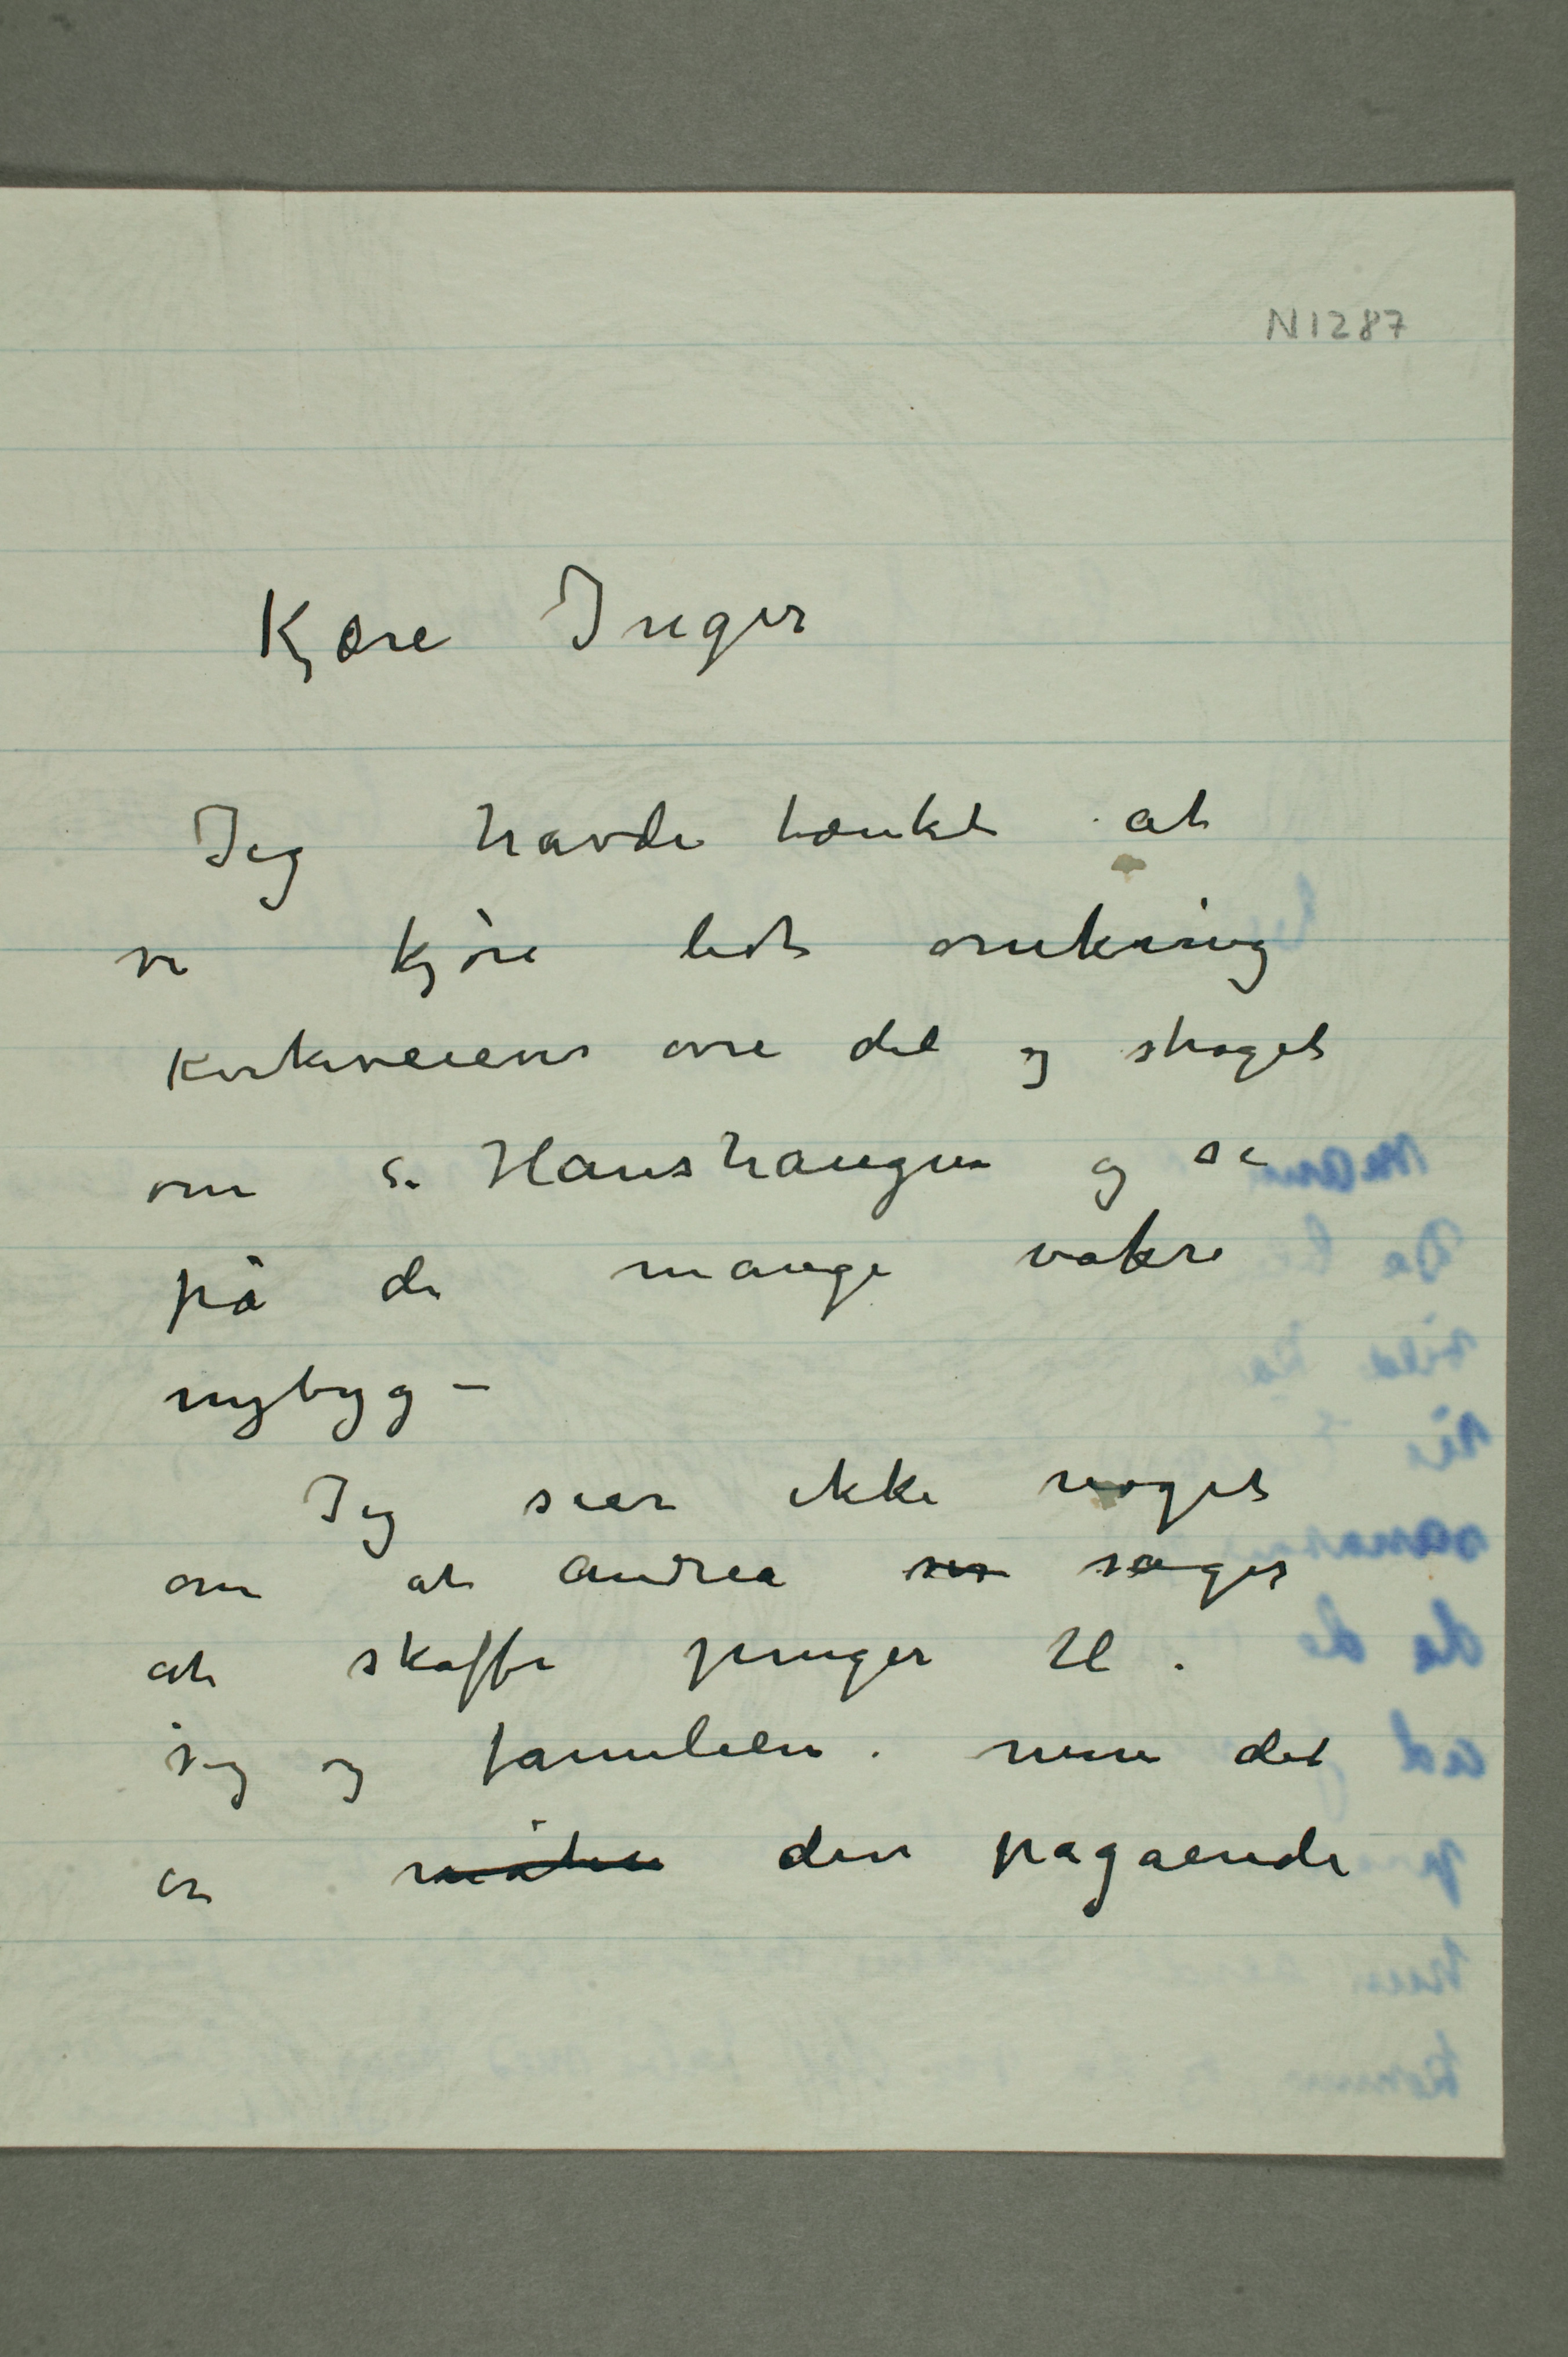 N 1287
Kjære Inger
Jeg havde tænkt at
vi kjøre lidt omkring
Kirkeveiens øvre del og strøget
om St. Hanshaugen og se
på de mange vakre
nybyg –
Jeg sier ikke noget
om at Andrea søger
at skaffe penger til
sig og familien. men det
er måten den pågående